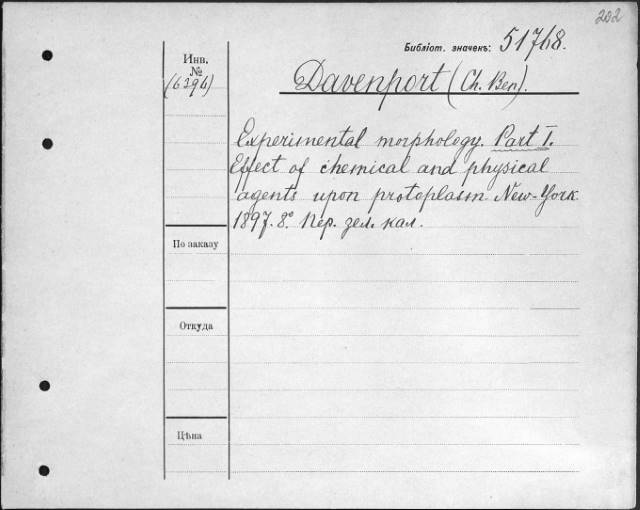 202
Библіот. значекъ: 51768.
Инв.
№
(6296)
Davenport (Ch. Ben).
Experimental morphology. Part I.
Effect of chemical and physical
agents upon protoplasm. New-York.
1897. 8° Пер. зел. кал.
По заказу
Откуда
Цѣна